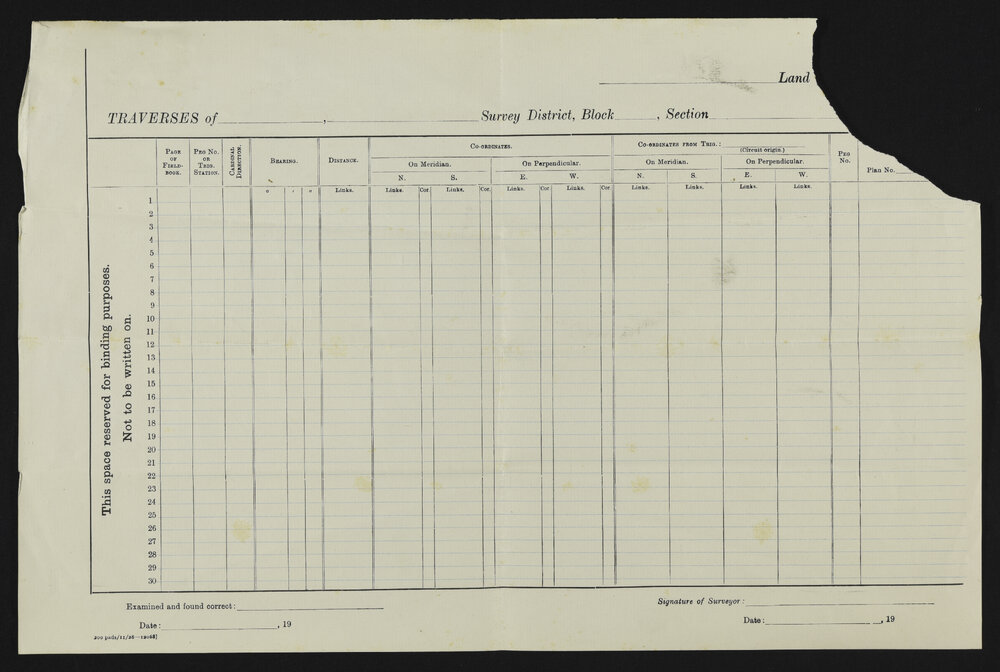 Land
TRAVERSES of , Survey District, Block , Section
PAGE OF FIELD-BOOK.
PEG NO. OR TRIG. STATION.
CARDINAL DIRECTION.
BEARING.
DISTANCE.
CO-ORDINATES.
On Meridian. On Perpendicular.
N. S. E. W.
CO-ORDINATES FROM TRIG. :
(Circuit origin.)
On Meridian. On Perpendicular.
N. S. E. W.
PEG NO.
Plan No.
° ′ ″ Links. Links. Cor. Links. Cor. Links. Cor. Links. Cor. Links. Links. Links. Links.
This space reserved for binding purposes.
Not to be written on.
1
2
3
4
5
6
7
8
9
10
11
12
13
14
15
16
17
18
19
20
21
22
23
24
25
26
27
28
29
30
Examined and found correct:
Signature of Surveyor:
Date: , 19
Date: , 19
200 pads/11/26—12068]